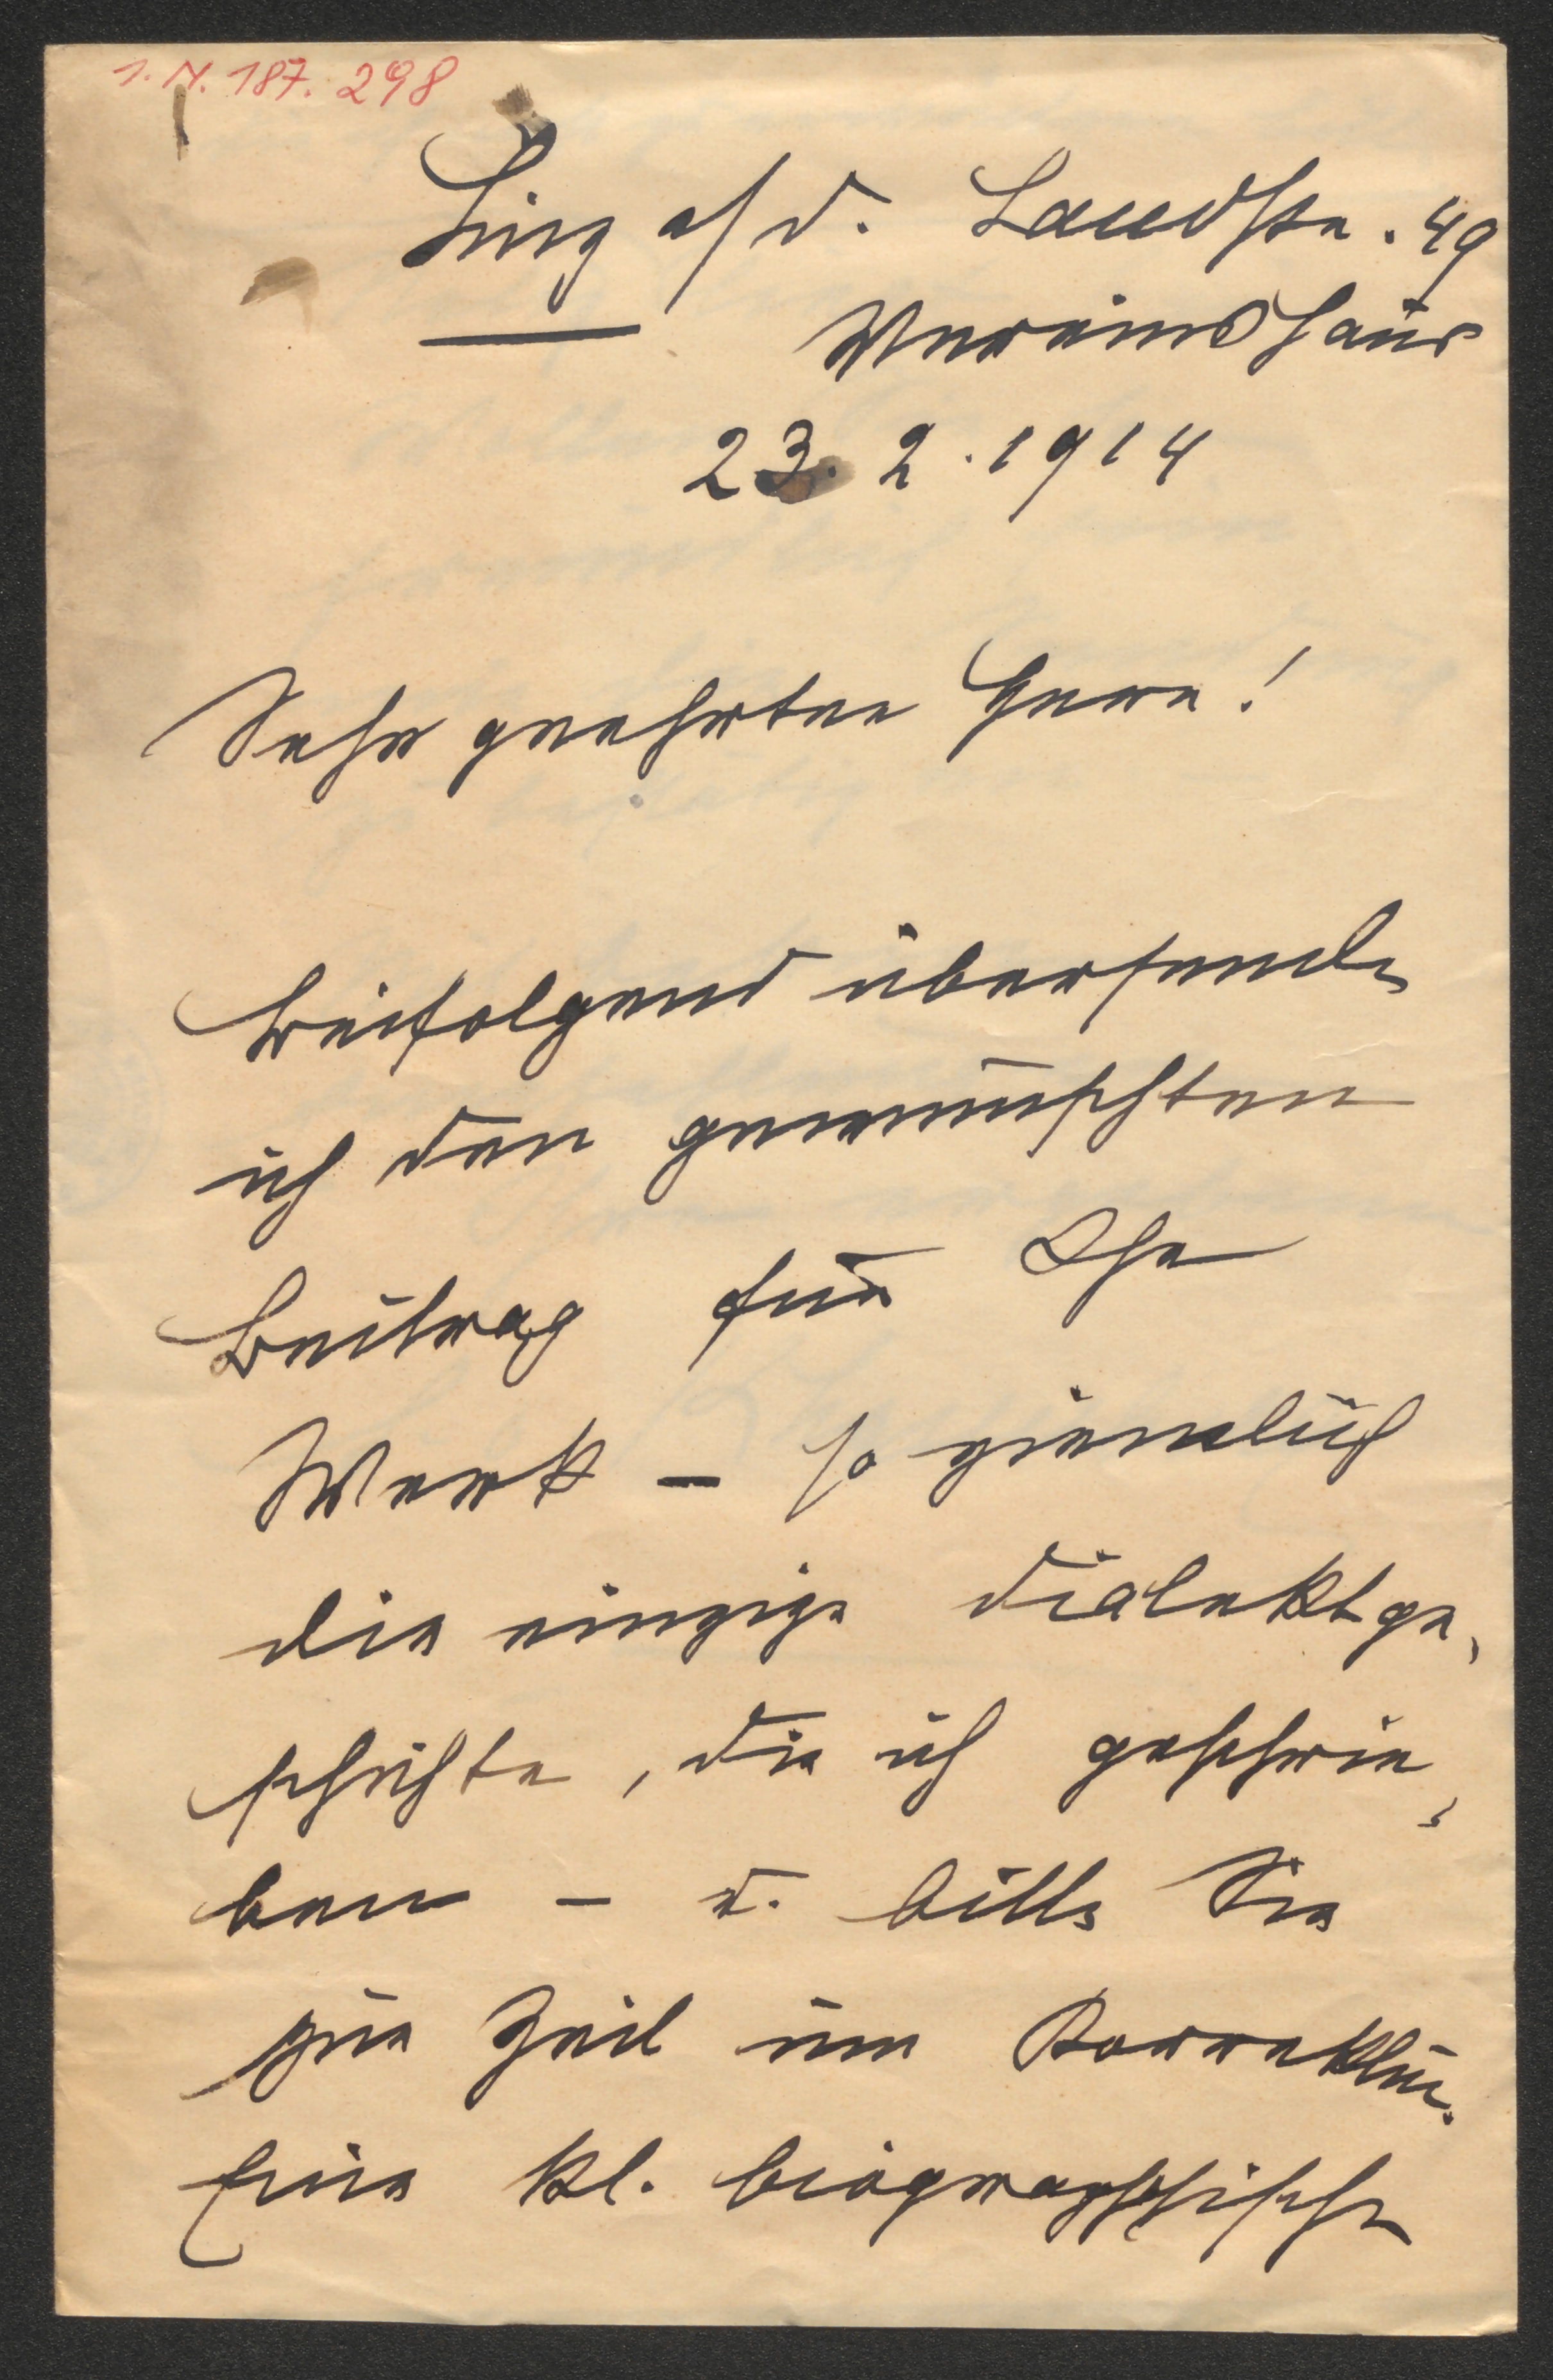 I. N. 187. 298
Linz a/d. Landstr. 49
Vereinshaus
23. 2. 1914
Sehr geehrter Herr!
Beifolgend übersende
ich den gewünschten
Beitrag für Ihr
Werk – so ziemlich
die einzige Dialektge-
schichte, die ich geschrie-
ben – u. bitte Sie
zur Zeit um Korrektur.
Eine kl. biographische